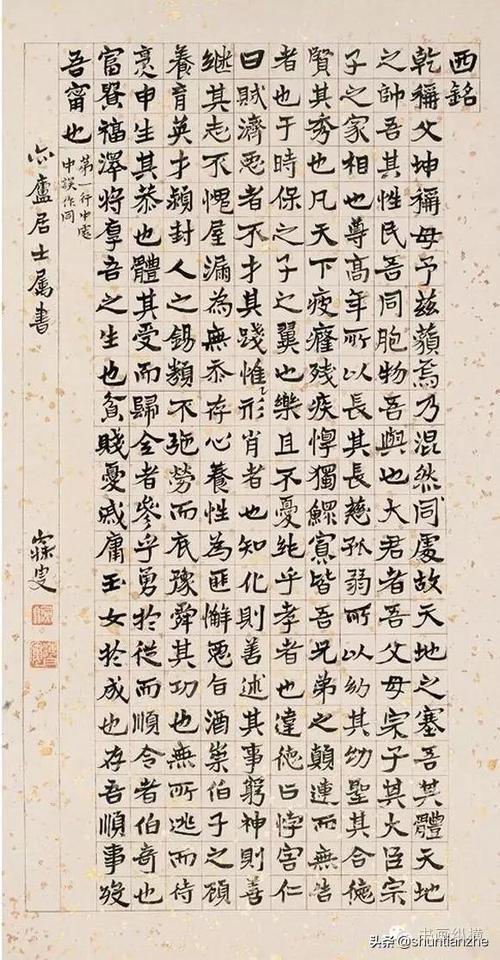 西銘
乾稱父坤稱母予茲藐焉乃混然同處故天地之塞吾其體天地
之帥吾其性民吾同胞物吾與也大君者吾父母宗子其大臣宗
子之家相也尊高年所以長其長慈孤弱所以幼其幼聖其合德
賢其秀也凡天下疲癃殘疾惸獨鰥寡皆吾兄弟之顛連而無告
者也于時保之子之翼也樂且不憂純乎孝者也違德曰悖害仁
曰賊濟惡者不才其踐惟形肖者也知化則善述其事窮神則善
継其志不愧屋漏為無忝存心養性為匪懈惡旨酒崇伯子之顧
養育英才潁封人之錫類不弛勞而底豫舜其功也無所逃而待
烹申生其恭也體其受而歸全者參乎勇於從而順令者伯奇也
富貴福澤將厚吾之生也貧賤憂戚庸玉女於成也存吾順事歿
吾甯也
第一行中處
中誤作同
廬居士属書
寐叟
书画纵横
头条 @shuntianzhe